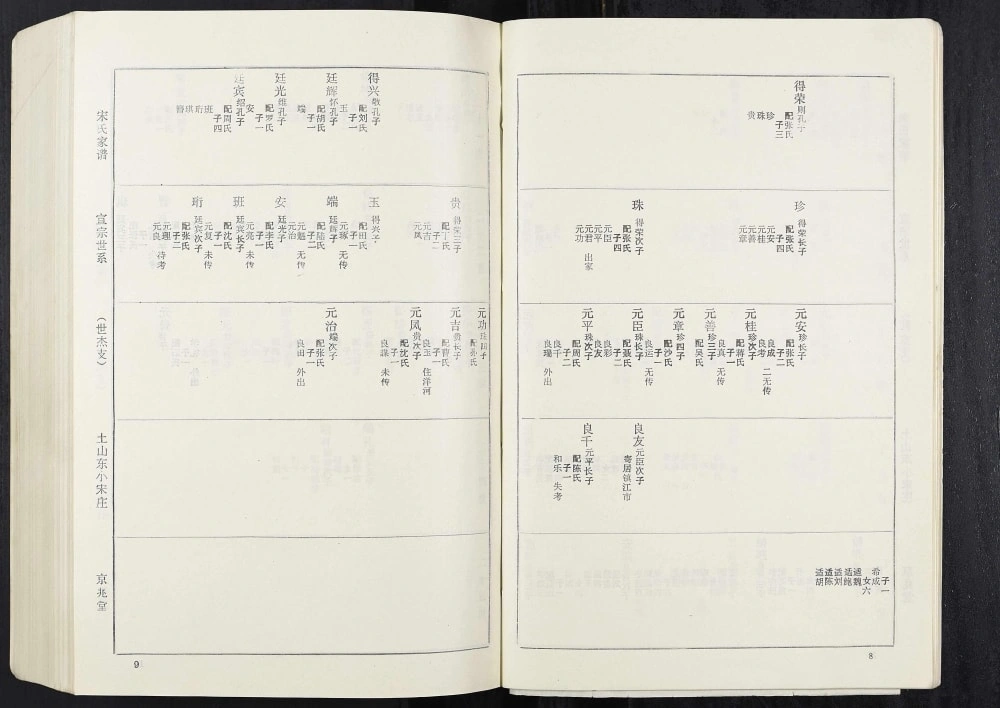 得荣 则孔子
配张氏
子三
珍
珠
贵
珍 得荣长子
配张氏
子四
元安
元桂
元善
元章
珠 得荣次子
配张氏
子四
元臣
元平
元君 出家
元功
元安 珍长子
配张氏
子二
良成 二无传
良考
元桂 珍次子
配蒋氏
子一
良真 无传
元善 珍三子
配吴氏
元章 珍四子
配沙氏
子一
良运 无传
元臣 珠长子
配聂氏
子二
良彩
良友
元平 珠次子
配周氏
子二
良千
良瑞 外出
良友 元臣次子
寄居镇江市
良千 元平长子
配陈氏
子一
和乐 失考
子一
希成
女六
适魏
适鲍
适刘
适陈
适胡
8
得兴 敬孔子
配刘氏
子一
玉
廷辉 怀孔子
配胡氏
子一
端
廷光 继孔子
配罗氏
子一
安
廷宾 绍孔子
配周氏
子四
班
珩
琪
贵
配丁氏
子二
元吉
元凤
玉 得兴子
配田氏
子一
元琢 无传
端 廷辉子
配陆氏
子二
元魁 无传
元治
安 廷光子
配李氏
子一
元亮 未传
班 廷宾长子
配沈氏
子一
元复 未传
珩 廷宾次子
配张氏
子二
元理 待考
元良
元功 珠四子
配孙氏
元吉 贵长子
配曹氏
子一
良玉 住洋河
元凤 贵次子
配沈氏
子一
良谋 未传
元治 端次子
配张氏
子一
良田 外出
宋氏家谱
宣宗世系
（世杰支）
土山东小宋庄
京兆堂
9